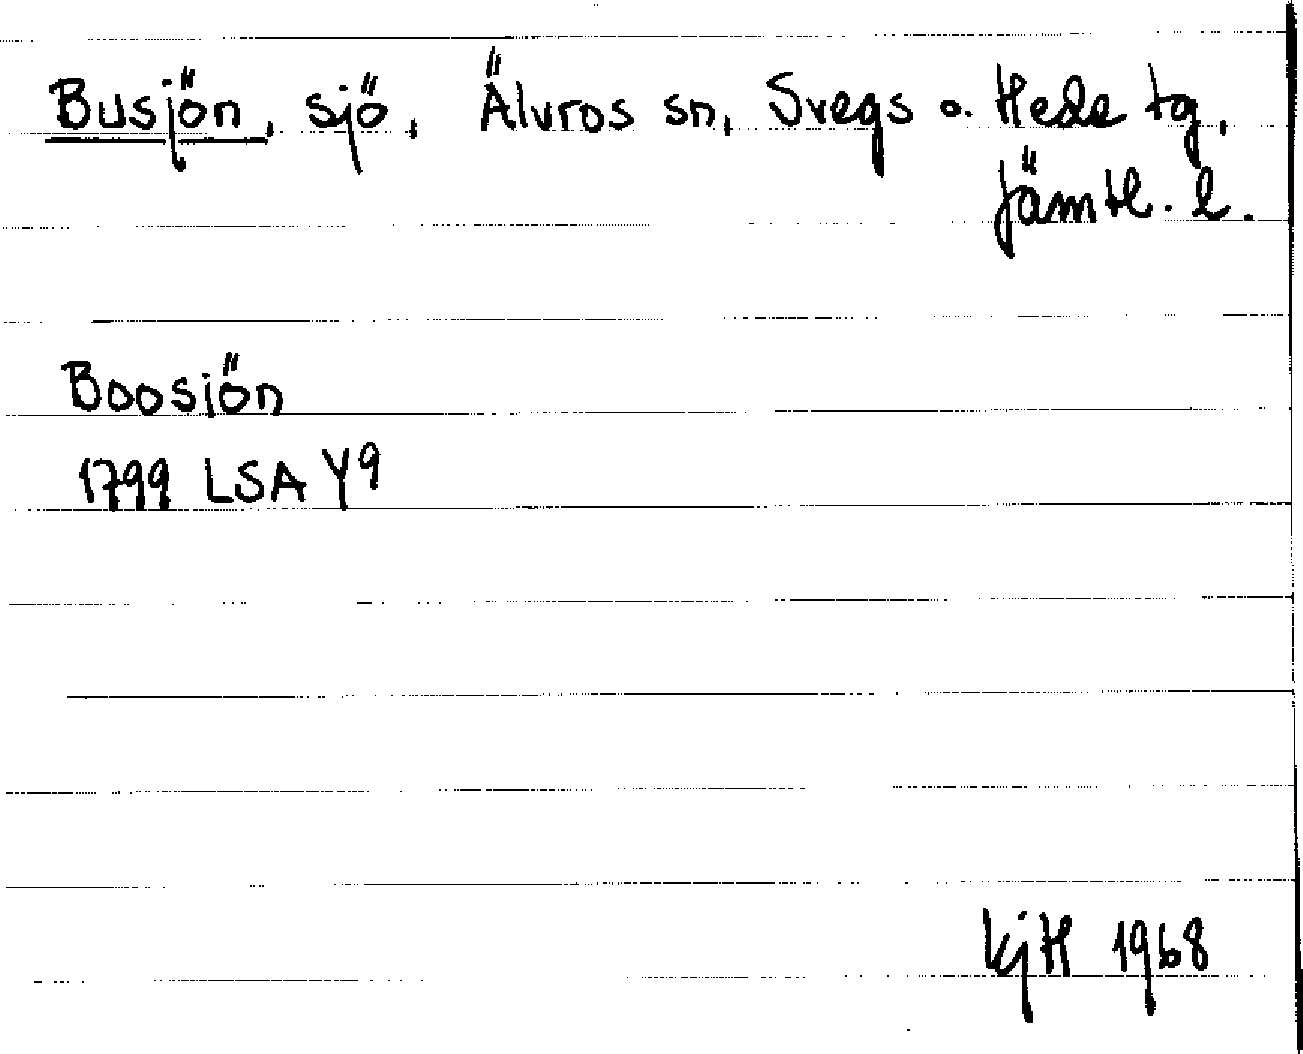 Busjön, sjö, Älvros sn, Svegs o. Hede tg,
Jämtl. l.
Boosiön
1799 LSA Y9
kjH 1968